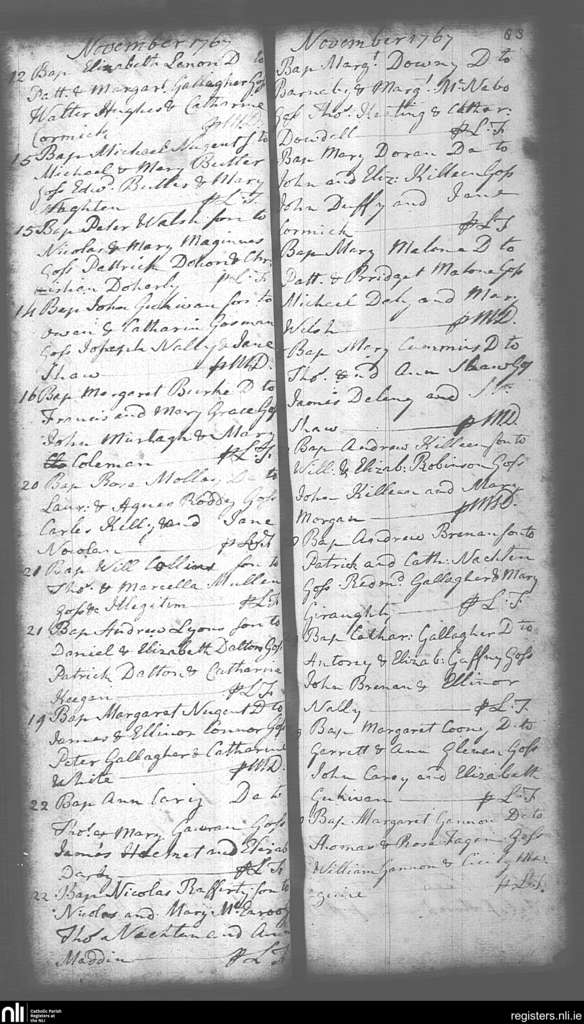 November 1767
12 Bap Elizabeth Lenon D to
Patt. & Margar. Gallagher Gos
Walter Hughes & Catharine
Cormick p MD.
15 Bap Michael Nugent S to
Michael & Mary Butler
Goss Edwd. Butler & Mary
p L:F.
15 Bap Peter Walsh son to
Nicolas & Mary Maginnes
Goss Pattrick & Chr:
Doherly p L:F.
14 Bap John Gukivan son to
Owen & Catharin
Goss Joseph Nally & Jane
Shaw p MD.
16 Bap Margaret Burke D to
Francis and Mary Grace Gos
John Murtagh & Mary
Coleman p L:F.
20 Bap Rose Mollay Da to
Laur: & Agnes Roddy Goss
Carles Killy and Jane
Novolan p L:F
21 Bap Will Collins son to
Thos. & Marcella Mullen
Goss &c Illegitim p L:F
21 Bap Andrew Lyons son to
Daniel & Elizabeth Dalton Gos
Patrick Dalton & Catharine
Keegan p L:F
19 Bap Margaret Nugent D to
James & Ellinor Connor Gos
Peter Gallagher & Catharine
White p MD.
22 Bap Ann Carij Da to
Thos. & Mary Gavran Goss
James and Elizab
Darby p L:F.
22 Bap Nicolas Rafferty son to
Nicolas and Mary
Thos Nachtan and Ann
Maddin p L:F
November 1767
83
Bap Margt. Downy D to
Barnebi & Margt. McNabo
Goss Thos. Keating & Cathar:
Dowdell p L:F.
Bap Mary Doran Da to
John and Eliz: Killeen Goss
John Duffy and Jane
Cormick p L:F
Bap Mary Malone D to
Patt. & Bridget Malone Goss
Michael Daly and Mary
Welsh p MD.
Bap Mary Cummins D to
Thos. & Ann Shaw Gos
James Deleny and
Shaw p MD.
Bap Andrew Killeen son to
Will: & Elizab: Robinson Goss
John Killean and Mary
Morgan p MD.
Bap Andrew Brenan son to
Patrick and Cath: Nachten
Goss Redmd. Gallagher & Mary
Giraughty p L:F
Bap Cathar: Gallagher D to
Antony & Elizab: Gaffny Goss
John Brenan & Ellinor
Nally p L:F.
Bap Margaret Coony D to
Garrett & Ann Glenen Goss
John Carey and Elizabeth
Gukivan p L:F
Bap Margaret Gannon D to
Thomas & Rose Fagan Goss
William Gannon & Cicily Mac
guire p L:F.
nli Catholic Parish
Registers at
the NLI
registers.nli.ie